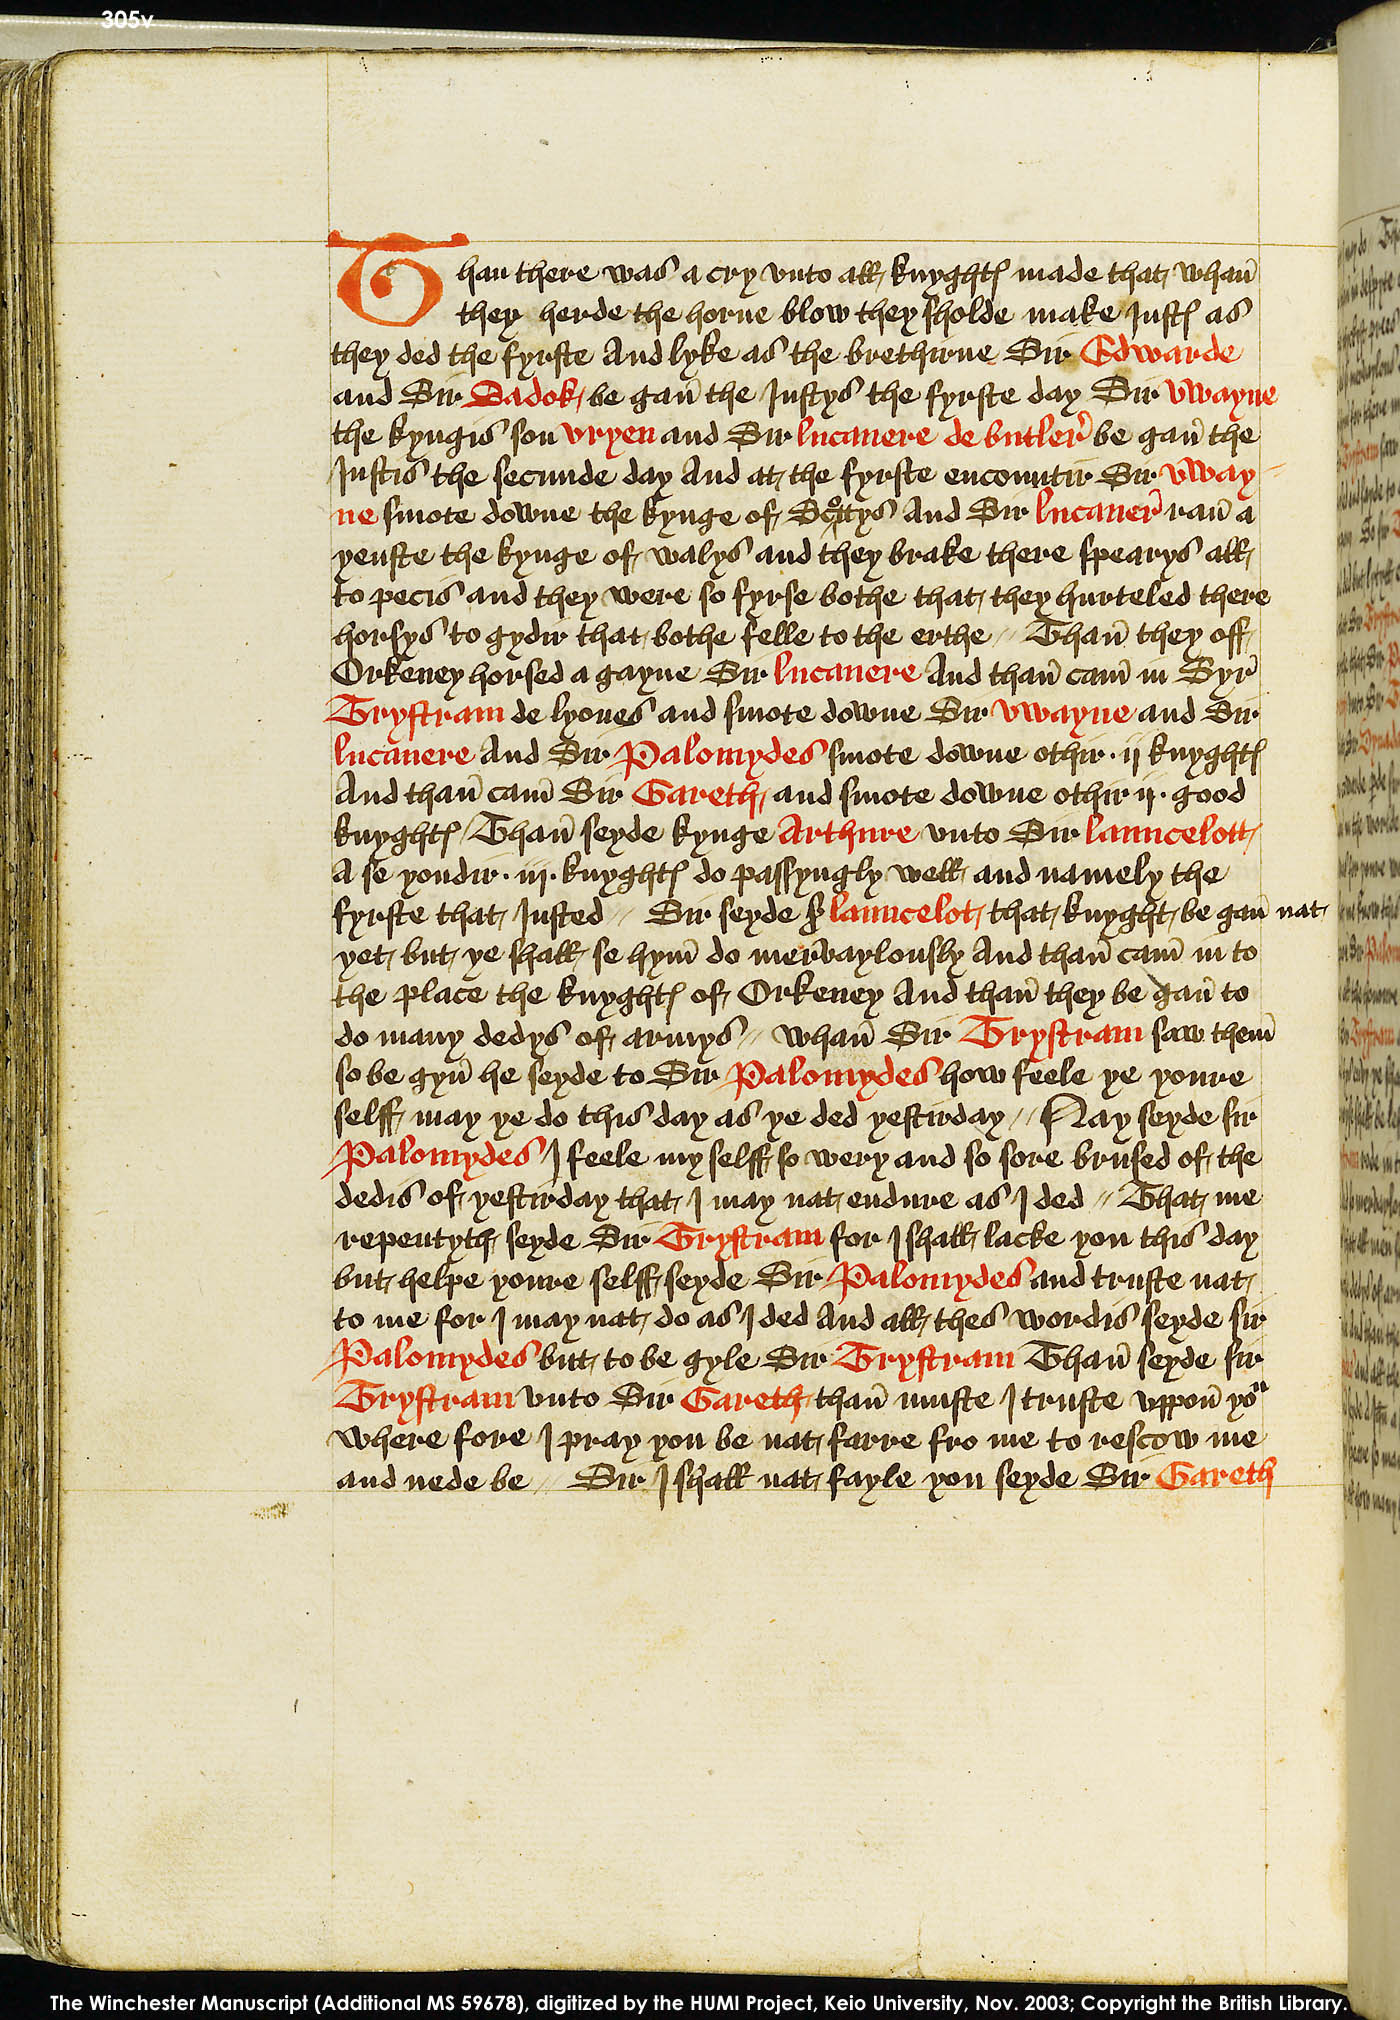 305v
Than there was a cry vnto all knyghtes made that whan̄
they herde the horne blow they sholde make Justes as
they ded the fyrste And lyke as the brethirne Sir Edwarde
and Sir Sadok be gan̄ the Justys the fyrste day Sir vwayne
the kyngis son vryen and Sir lucanere de butler̄ be gan̄ the
Justis the secunde day And at the fyrste encountir Sir vway-
ne smote downe the kynge of Scottys And Sir lucaner̄ ran̄ a
yenste the kynge of walys and they brake there spearys all
to pecis and they were so fyrse bothe that they hurteled there
horsys to gydir that bothe felle to the erthe // Than̄ they off
Orkeney horsed a gayne Sir lucanere And than̄ cam̄ in Syr̄
Trystram de lyones and smote downe Sir vwayne and Sir
lucanere And Sir Palomydes smote downe othir · ij knyghtes
And than̄ cam̄ Sir Gareth and smote downe othir ij · good
knyghtes / Than̄ seyde kynge Arthure vnto Sir launcelott
A se yondir · iij · knyghtes do passyngly well and namely the
fyrste that Justed // Sir seyde sir launcelot that knyght be gan̄ nat
yet but ye shall se hym̄ do mervaylously And than̄ cam̄ in to
the place the knyghtes of Orkeney And than̄ they be gan̄ to
do many dedys of armys // whan̄ Sir Trystram saw them̄
so be gyn̄ he seyde to Sir Palomydes how feele ye youre
selff may ye do this day as ye ded yestirday // Nay seyde sir
Palomydes I feele my selff so wery and so sore brused of the
dedis of yestirday that I may nat endure as I ded // That me
repentyth seyde Sir Trystram for I shall lacke you this day
but helpe youre selff seyde Sir Palomydes and truste nat
to me for I may nat do as I ded And all thes wordis seyde sir
Palomydes but to be gyle Sir Trystram Than̄ seyde sir
Trystram vnto Sir Gareth than̄ muste I truste vppon̄ yoᵘ
where fore I pray you be nat farre fro me to rescow me
and nede be // Sir I shall nat fayle you seyde Sir Gareth
The Winchester Manuscript (Additional MS 59678), digitized by the HUMI Project, Keio University, Nov. 2003; Copyright the British Library.